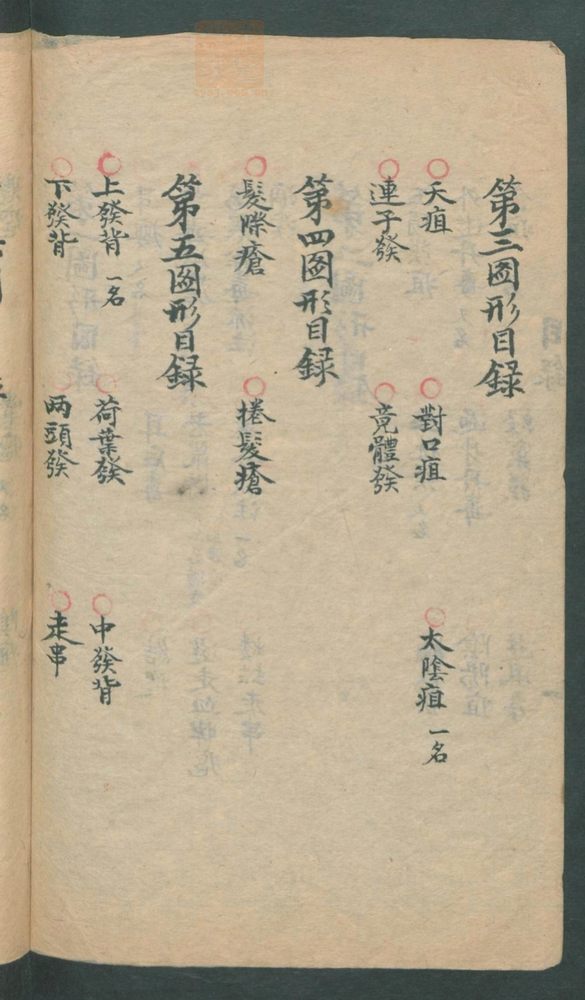 第三圖形目録
天疽 對口疽 太陰疽一名
連子發 竟體發
第四圖形目録
髮際瘡 捲髮瘡
第五圖形目録
上發背一名 荷葉發 中發背
下發背 两頭發 走串